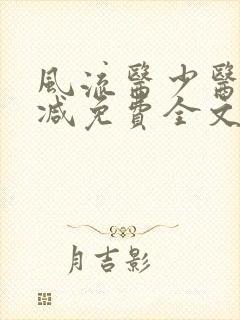 風流醫少醫
減免費全文
月吉影